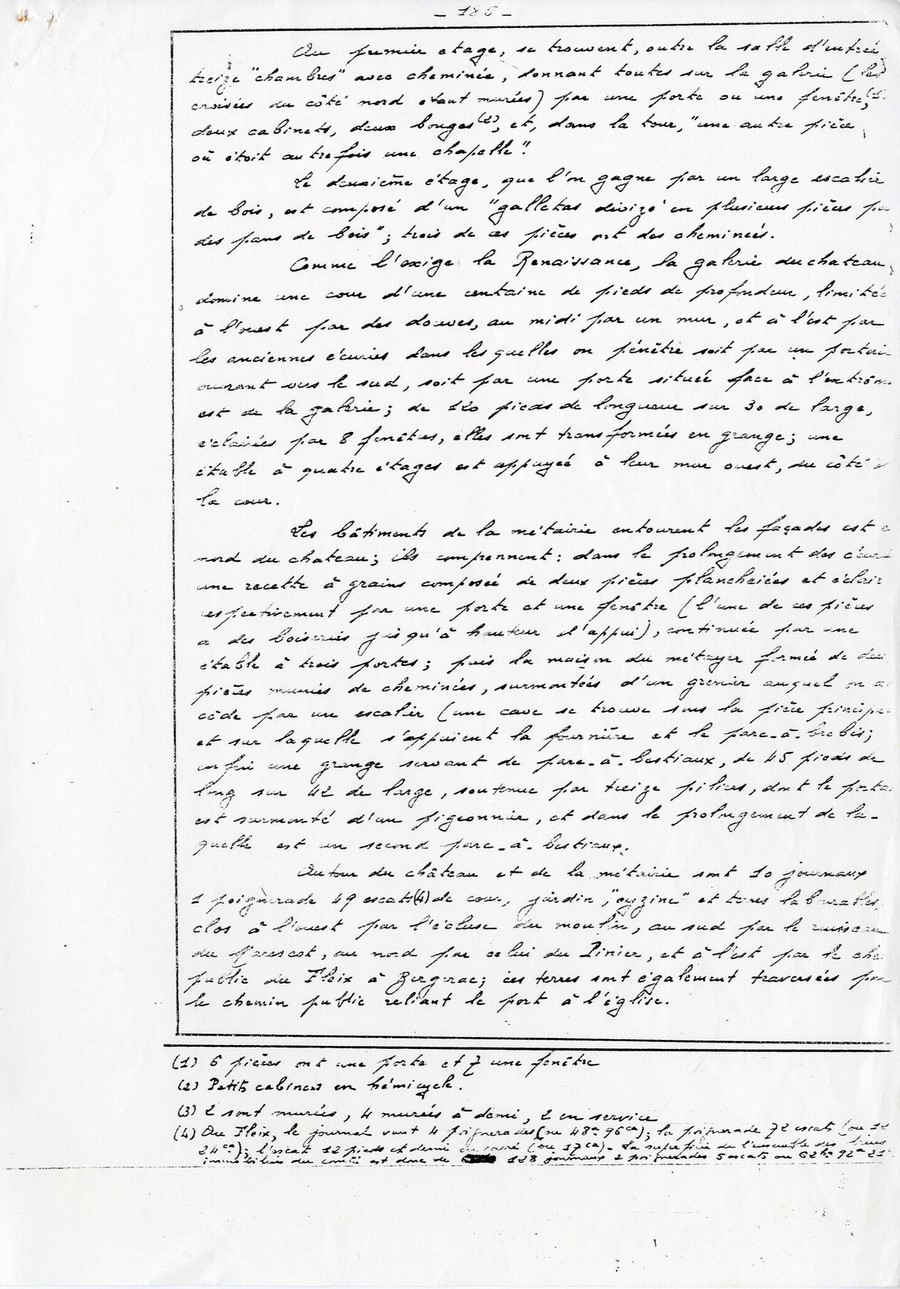 - 185 -
Au premier étage, se trouvent, outre la salle d'entrée
treize "chambres" avec cheminée, donnant toutes sur la galerie (les
croisées du côté nord étant murées) par une porte ou une fenêtre, (1)
deux cabinets, deux bouges (2), et, dans la tour, "une autre pièce
où étoit autrefois une chapelle".
Le deuxième étage, que l'on gagne par un large escalier
de bois, est composé d'un "galletas divizé en plusieurs pièces
des pans de bois"; trois de ces pièces ont des cheminées.
Comme l'exige la Renaissance, la galerie du chateau,
domine une cour d'une centaine de pieds de profondeur, limitée
à l'ouest par des douves, au midi par un mur, et à l'est par
les anciennes écuries dans lesquelles on pénêtre soit par un portai
ouvrant vers le sud, soit par une porte située face à l'entrée
est de la galerie; de 120 pieds de longueur sur 30 de large,
éclairées par 8 fenêtres, elles sont transformées en grange; une
étable à quatre étages est appuyée à leur mur ouest, du côté
la cour.
Les bâtiments de la métairie entourent les façades est
nord du chateau; ils comprennent: dans le prolongement des écuri
une recette à grains composée de deux pièces plancheiées et éclair
respectivement par une porte et une fenêtre (l'une de ces pièces
a des boiseries jusqu'à hauteur d'appui), continuée par une
étable à trois portes; puis la maison du métayer formée de deu
pièces munies de cheminées, surmontées d'un grenier auquel on ac
cède par un escalier (une cave se trouve sous la pièce principa
et sur laquelle s'appuient la fournière et le parc-à-brebis;
enfin une grange servant de parc-à-bestiaux, de 45 pieds de
long sur 42 de large, soutenue par treize piliers, dont le porta
est surmonté d'un pigeonnier, et dans le prolongement de la-
quelle est un second parc-à-bestiaux.
Autour du château et de la métairie sont 10 journaux
1 poignerade 49 escats (4) de cour, jardin, "eyzine" et terres labourables,
clos à l'ouest par l'écluse du moulin, au sud par le ruisseau
du Marescot, au nord par celui du Pinier, et à l'est par le che
public du Fleix à Bergerac; ces terres sont également traversées pa
le chemin public reliant le port à l'église.
(1) 6 pièces ont une porte et 7 une fenêtre
(2) Petits cabinets en hémicycle.
(3) 2 sont murées, 4 murées à demi, 2 en service
(4) Au Fleix, le journal vaut 4 poignerades (ou 48a 96ca); la poignerade 72 escats (ou 12
24ca); l'escat 12 pieds et demi au carré (ou 17ca) - La superficie de l'ensemble des biens
immobiliers du comté est donc de 128 journaux 2 poignerades 5 escats ou 62ha 92a 21